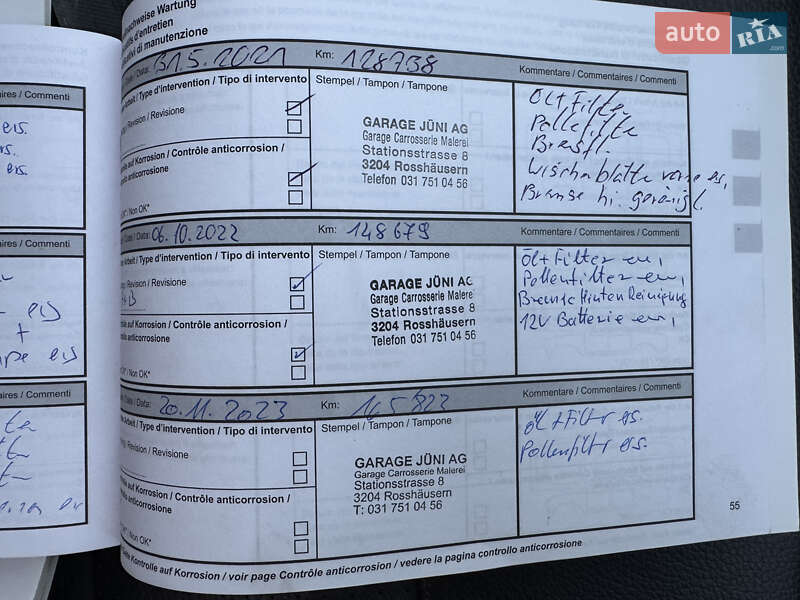 nachweise Wartung
d'entretien
di manutenzione
auto RIA .com
aires / Commenti
Date / Data: 31.5.2021 Km: 128738 Kommentare / Commentaires / Commenti
Arbeit / Type d'intervention / Tipo di intervento Stempel / Tampon / Tampone
Revision / Revisione
auf Korrosion / Contrôle anticorrosion /
anticorrosione
OK* / Non OK*
GARAGE JÜNI AG
Garage Carrosserie Malerei
Stationsstrasse 8
3204 Rosshäusern
Telefon 031 751 04 56
Öl+Filter
Brems
Wischerblätter vorne es,
Bremse hi. gereinigt.
aires / Commenti
Date / Data: 06.10.2022 Km: 148679 Kommentare / Commentaires / Commenti
Arbeit / Type d'intervention / Tipo di intervento Stempel / Tampon / Tampone
Revision / Revisione
auf Korrosion / Contrôle anticorrosion /
anticorrosione
OK* / Non OK*
GARAGE JÜNI AG
Garage Carrosserie Malerei
Stationsstrasse 8
3204 Rosshäusern
Telefon 031 751 04 56
Öl+Filter er,
Pollenfilter er,
Bremse Hinten Reinigung
12V Batterie er,
aires / Commenti
Date / Data: 20.11.2023 Km: 165822 Kommentare / Commentaires / Commenti
Arbeit / Type d'intervention / Tipo di intervento Stempel / Tampon / Tampone
Revision / Revisione
auf Korrosion / Contrôle anticorrosion /
anticorrosione
OK* / Non OK*
GARAGE JÜNI AG
Garage Carrosserie Malerei
Stationsstrasse 8
3204 Rosshäusern
T: 031 751 04 56
Öl+Filter es.
Pollenfilter es.
55
Kontrolle auf Korrosion / voir page Contrôle anticorrosion / vedere la pagina controllo anticorrosione